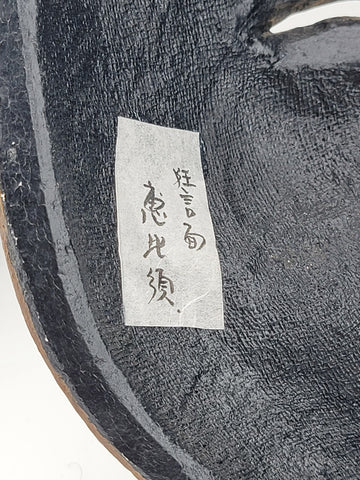 狂言面
恵比須